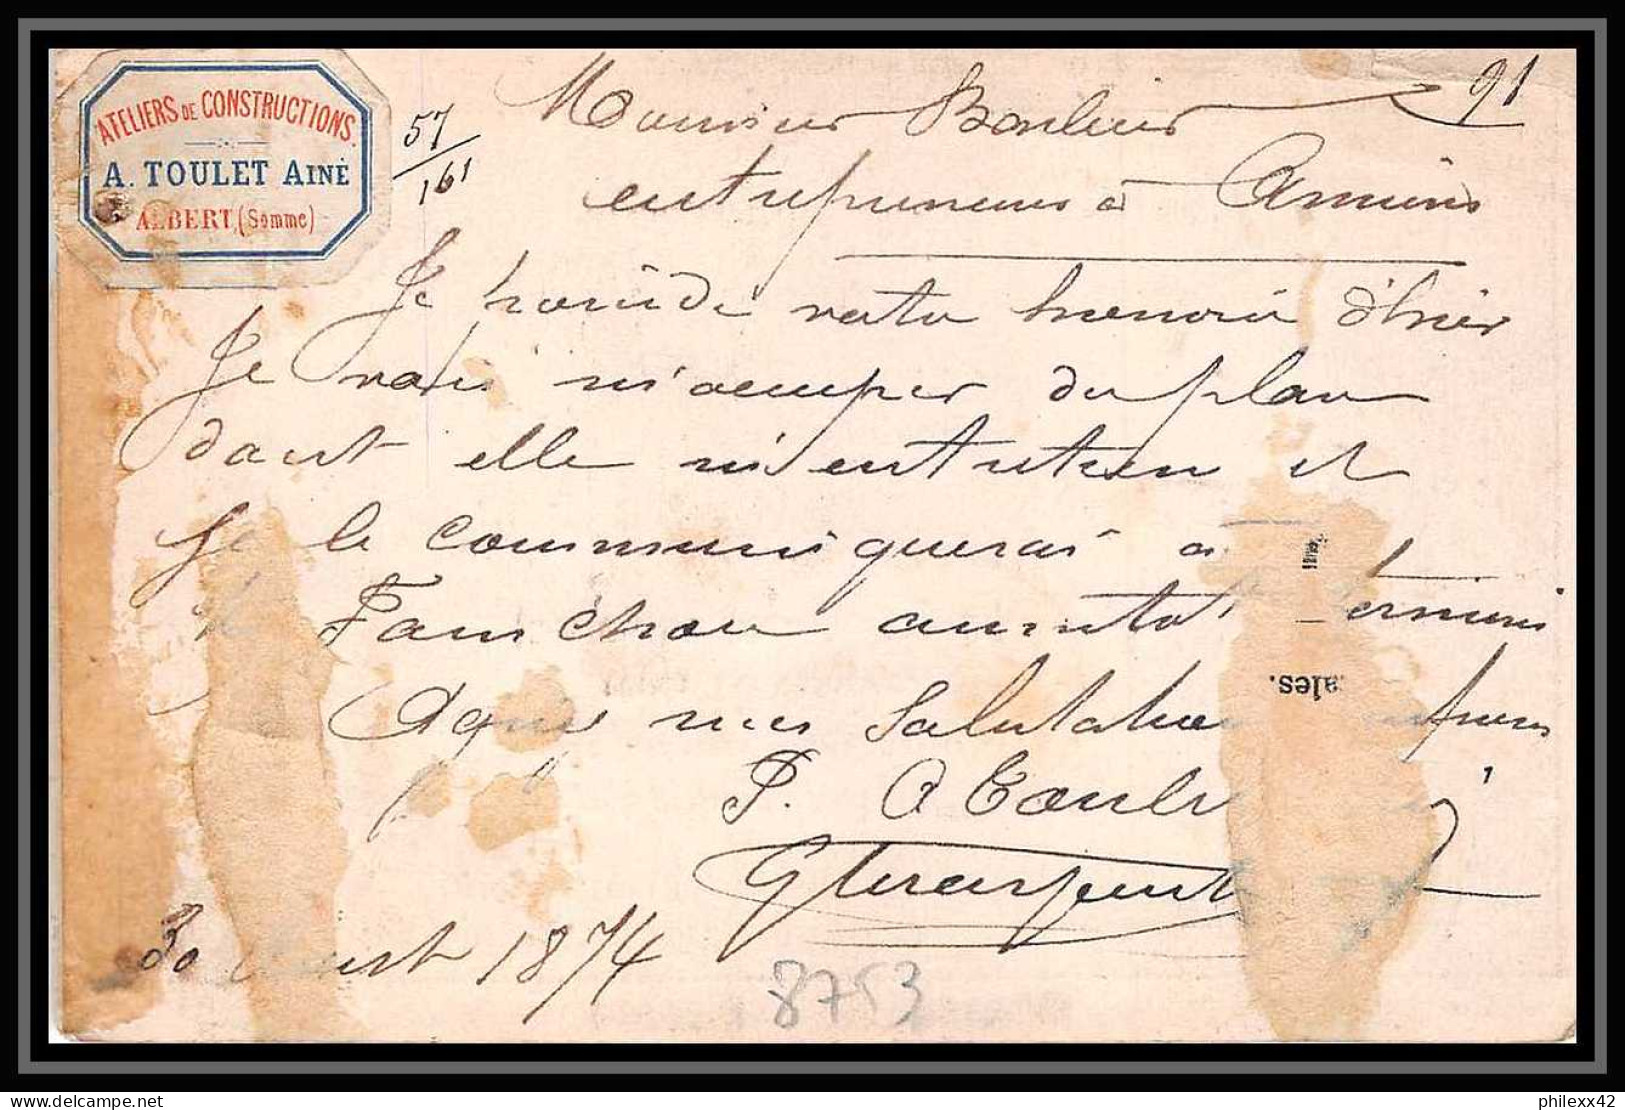 ATELIERS DE CONSTRUCTIONS.
A. TOULET AINÉ
ALBERT (Somme)
57
161
91
Monsieur
entrepreneur à Amiens
Je possède votre honoré d'hier
Je vais m'occuper du plan
dont elle m'entretien et
Je le communiquerai à
aussitôt
Agréez mes Salutations
P. A Toulet
30 Aoust 1874
8753
ales.
philexx42